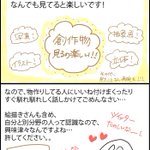 なんでも見てると楽しいです!
写真!
抽象画!
創作作物
見るの楽しい!!
イラスト!
立体!
なので、物作りしてる人にいいね付けまくったり
すぐ馴れ馴れしく話しかけてごめんなさい…
絵描きさんも含め、
自分と別分野の人って認識なので、
興味津々なんですよね…
許してください。